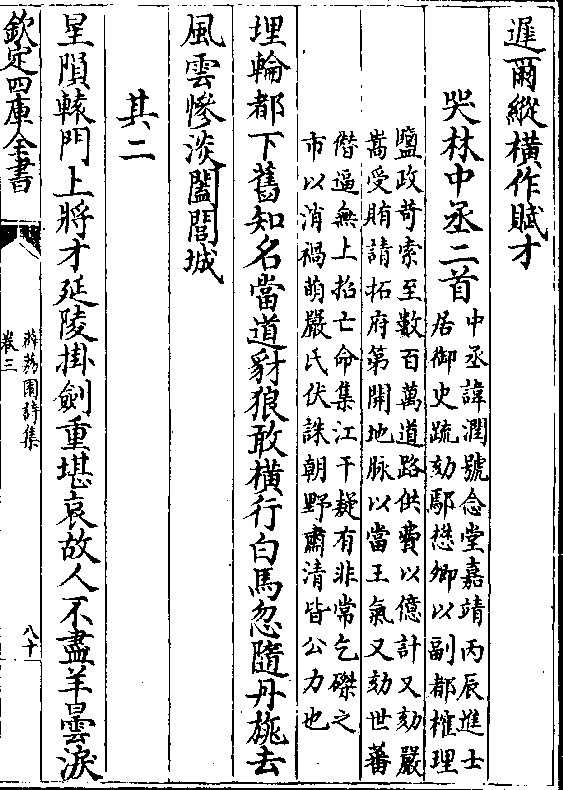 遲爾縱橫作賦才
哭林中丞二首
中丞諱潤號念堂嘉靖丙辰進士
居御史疏劾鄢懋卿以副都榷理
鹽政苛索至數百萬道路供費以億計又劾嚴
嵩受賄請拓府第開地脉以當王氣又劾世蕃
僣逼無上招亡命集江干疑有非常乞磔之
市以消禍萌嚴氏伏誅朝野肅清皆公力也
埋輪都下舊知名當道豺狼敢橫行白馬忽隨丹旐去
風雲慘淡闔閭城
其二
星隕轅門上將才延陵掛劍重堪哀故人不盡羊曇淚
欽定四庫全書
卷三
八十